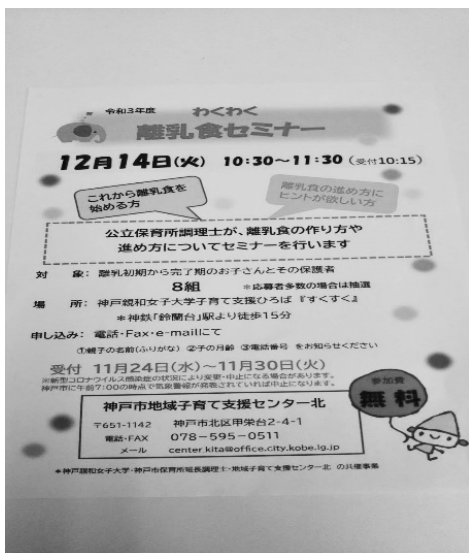 令和3年度 わくわく
離乳食セミナー
12月14日(火) 10:30～11:30 (受付10:15)
これから離乳食を
始める方
離乳食の進め方に
ヒントが欲しい方
公立保育所調理士が、離乳食の作り方や
進め方についてセミナーを行います
対 象: 離乳初期から完了期のお子さんとその保護者
8組 *応募者多数の場合は抽選
場 所: 神戸親和女子大学子育て支援ひろば『すくすく』
*神鉄「鈴蘭台」駅より徒歩15分
申し込み: 電話・Fax・e-mailにて
①親子の名前(ふりがな) ②子の月齢 ③電話番号 をお知らせください
受付 11月24日(水)～11月30日(火)
※新型コロナウイルス感染症の状況により変更・中止になる場合があります。
神戸市に午前7:00の時点で気象警報が発表されていれば中止になります。
参加費
無料
神戸市地域子育て支援センター北
〒651-1142 神戸市北区甲栄台2-4-1
電話・FAX 078-595-0511
メール center_kita@office.city.kobe.lg.jp
*神戸親和女子大学・神戸市保育所総長調理士・地域子育て支援センター北 の共催事業